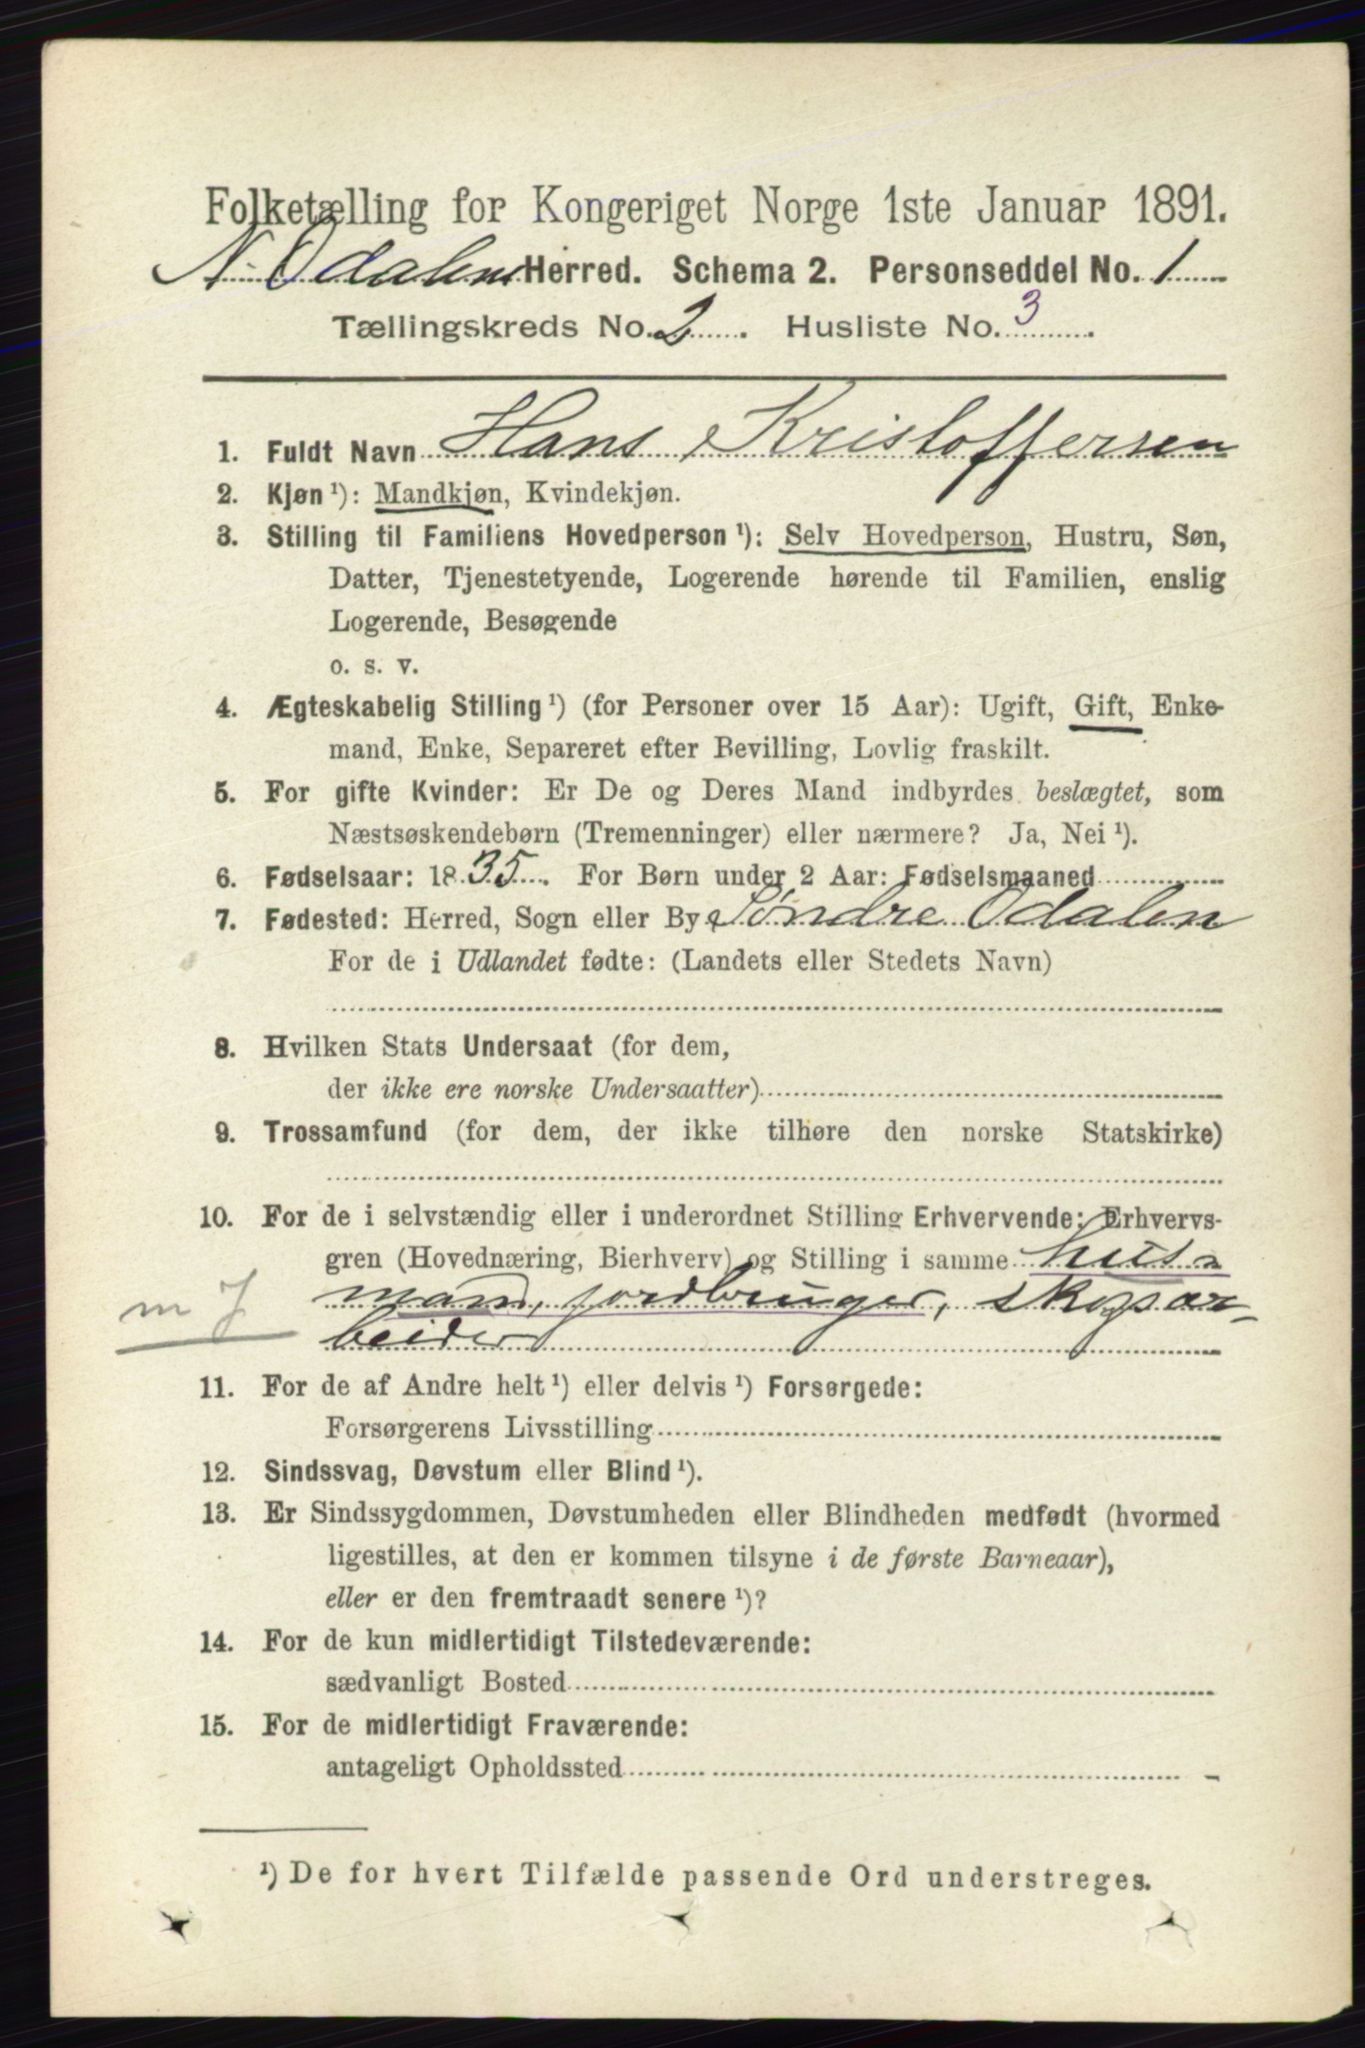 Folketælling for Kongeriget Norge 1ste Januar 1891.
N. Odalen Herred. Schema 2. Personseddel No. 1
Tællingskreds No. 2. Husliste No. 3.
1. Fuldt Navn Hans Kristoffersen
2. Kjøn ¹): Mandkjøn, Kvindekjøn.
3. Stilling til Familiens Hovedperson ¹): Selv Hovedperson, Hustru, Søn,
Datter, Tjenestetyende, Logerende hørende til Familien, enslig
Logerende, Besøgende
o. s. v.
4. Ægteskabelig Stilling ¹) (for Personer over 15 Aar): Ugift, Gift, Enke-
mand, Enke, Separeret efter Bevilling, Lovlig fraskilt.
5. For gifte Kvinder: Er De og Deres Mand indbyrdes beslægtet, som
Næstsøskendebørn (Tremenninger) eller nærmere? Ja, Nei ¹).
6. Fødselsaar: 1835. For Børn under 2 Aar: Fødselsmaaned
7. Fødested: Herred, Sogn eller By Søndre Odalen
For de i Udlandet fødte: (Landets eller Stedets Navn)
8. Hvilken Stats Undersaat (for dem,
der ikke ere norske Undersaatter)
9. Trossamfund (for dem, der ikke tilhøre den norske Statskirke)
10. For de i selvstændig eller i underordnet Stilling Erhvervende: Erhvervs-
gren (Hovednæring, Bierhverv) og Stilling i samme hus-
m J mand, jordbruger, skogsar-
beider
11. For de af Andre helt ¹) eller delvis ¹) Forsørgede:
Forsørgerens Livsstilling
12. Sindssvag, Døvstum eller Blind ¹).
13. Er Sindssygdommen, Døvstumheden eller Blindheden medfødt (hvormed
ligestilles, at den er kommen tilsyne i de første Barneaar),
eller er den fremtraadt senere ¹)?
14. For de kun midlertidigt Tilstedeværende:
sædvanligt Bosted
15. For de midlertidigt Fraværende:
antageligt Opholdssted
¹) De for hvert Tilfælde passende Ord understreges.